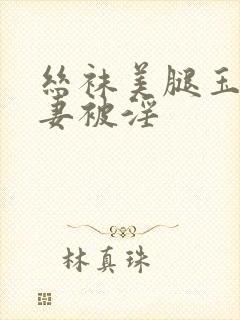 絲袜美腿玉
妻被淫
林真珠